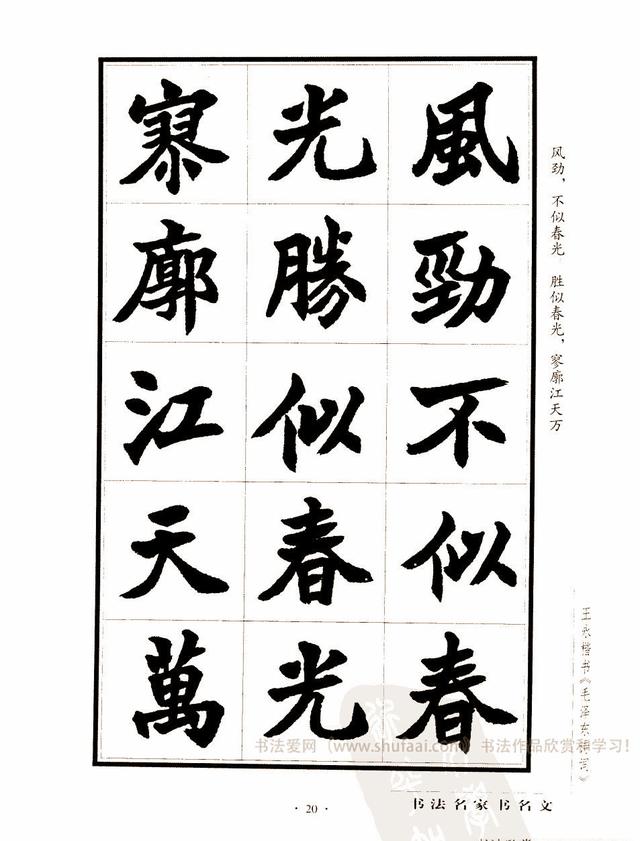 風勁不似春
光勝似春光
寥廓江天萬
风劲，不似春光 胜似春光，寥廓江天万
王永楷书《毛泽东诗词》
书法爱网（www.shufaai.com）书法作品欣赏和学习！
·20·
书法名家书名文